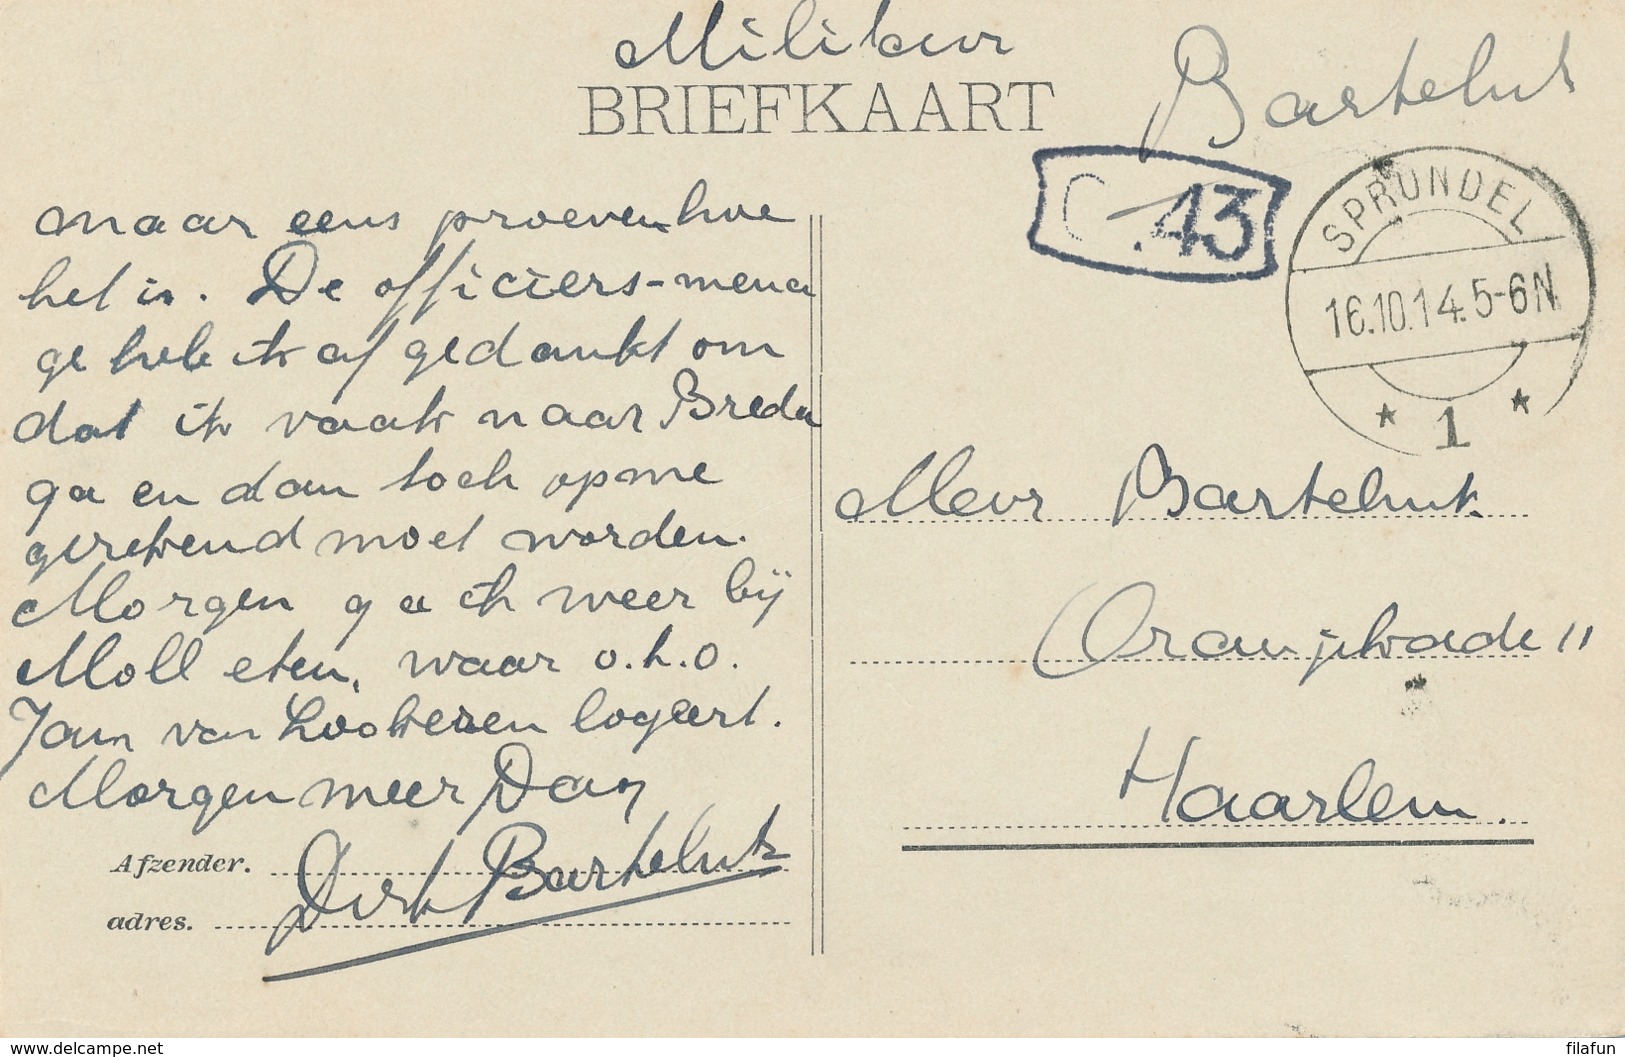 Militair
BRIEFKAART
Bartelink
C 43
SPRUNDEL
16.10.14.5-6N
* 1 *
maar eens proeven hoe
het is. De officiers-mena
ge heb ik afgedankt om
dat ik vaak naar Breda
ga en dan toch opme
gerekend moet worden.
Morgen ga ik weer bij
Moll eten, waar o.h.o.
Jan van Lookeren logeert.
Morgen meer Dag
Afzender. Dirk Bartelink
adres.
Mevr Bartelink.
Oranjekade 11
Haarlem.
www.delcampe.net
filafun